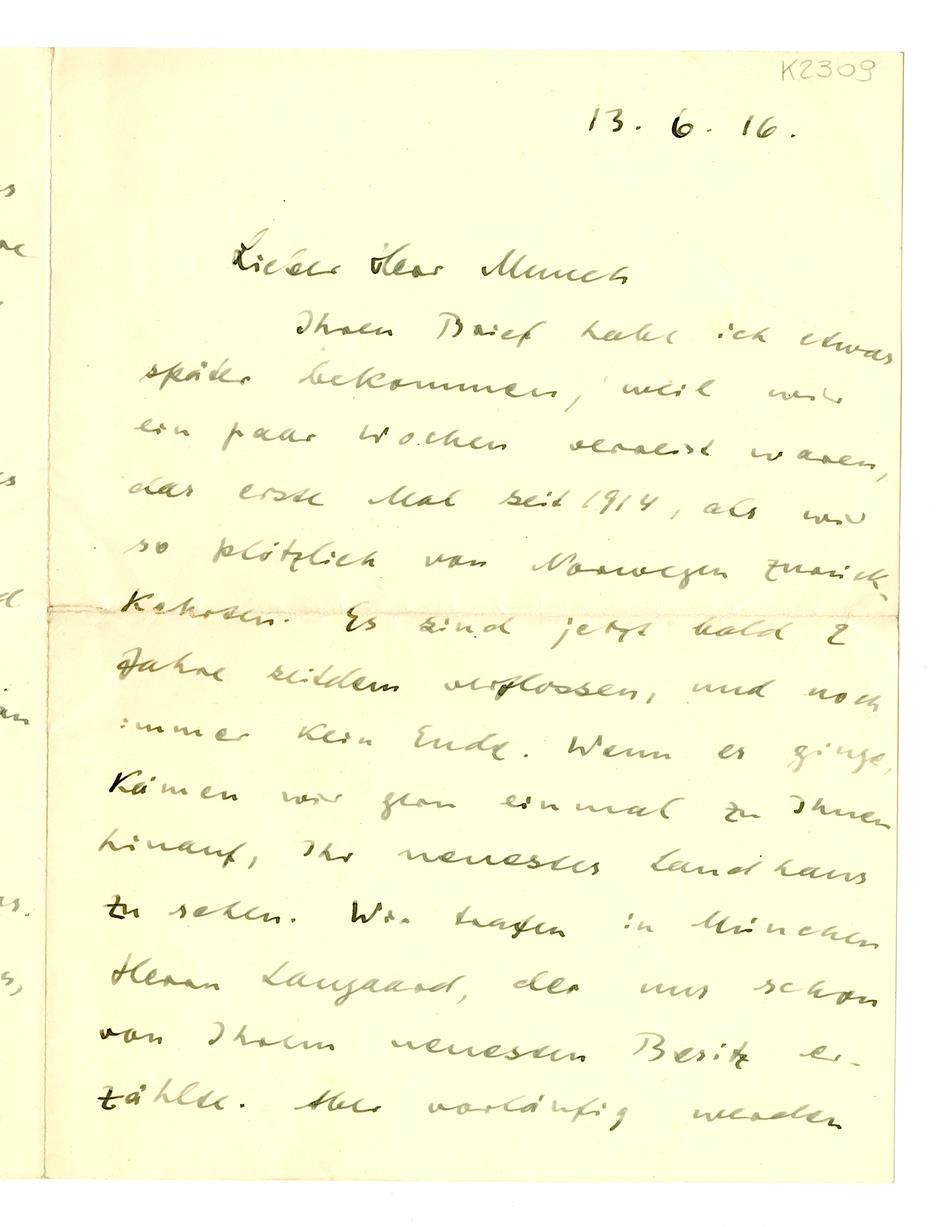 K2309
13. 6. 16.
Lieber Herr Munch
Ihren Brief habe ich etwas
später bekommen, weil wir
ein paar Wochen verreist waren,
das erste Mal seit 1914, als wir
so plötzlich von Norwegen zurück-
kehrten. Es sind jetzt bald 2
Jahre seitdem verflossen, und noch
immer kein Ende. Wenn es ginge,
kämen wir gern einmal zu Ihnen
hinauf, Ihr neuestes Landhaus
zu sehen. Wir trafen in München
Herrn Langaard, der uns schon
von Ihrem neuesten Besitz er-
zählte. Aber vorläufig werden